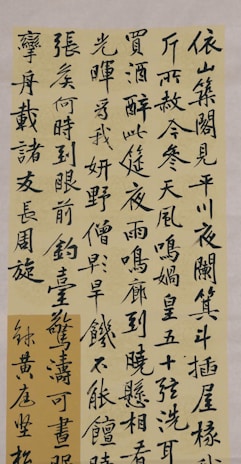 依山築閣見平川夜闌箕斗插屋椽我
斤所赦今參天風鳴媧皇五十弦洗耳
買酒醉此筵夜雨鳴廊到曉懸相看
光暉為我妍野僧早饑不能饘曉
張矦何時到眼前釣臺驚濤可晝眠
舟載諸友長周旋
錄黃庭堅松